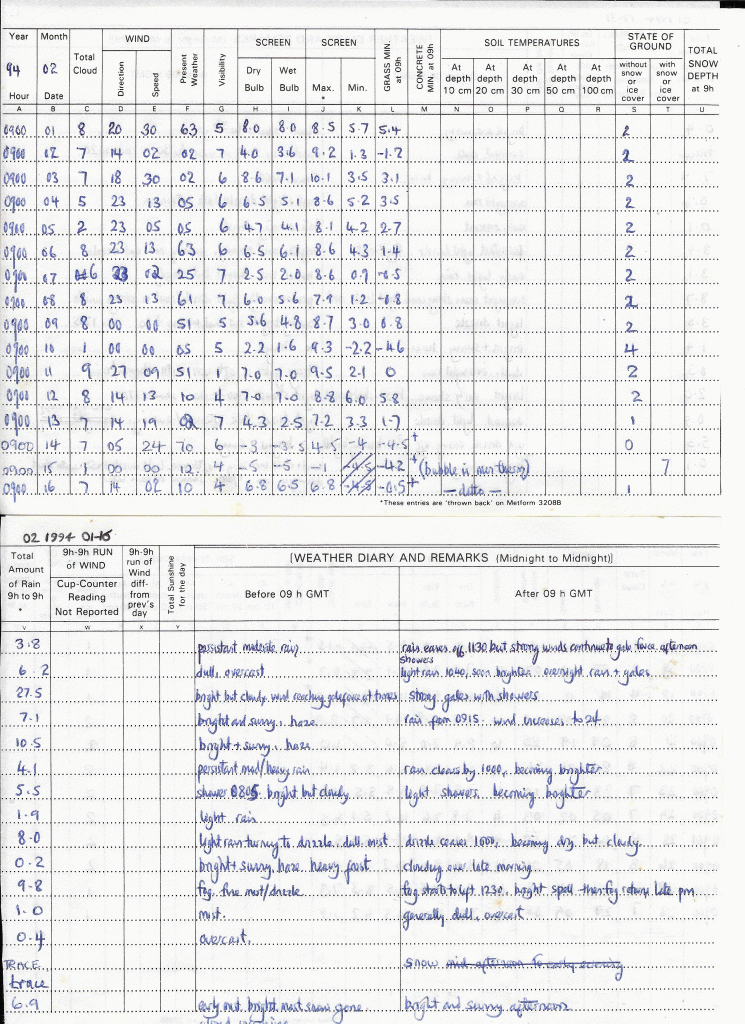 Year Month Total Cloud WIND Present Weather Visibility SCREEN SCREEN GRASS MIN. at 09h CONCRETE MIN. at 09h SOIL TEMPERATURES STATE OF GROUND TOTAL SNOW DEPTH at 9h
94 02 Direction Speed Dry Bulb Wet Bulb Max. * Min. At depth 10 cm At depth 20 cm At depth 30 cm At depth 50 cm At depth 100 cm without snow or ice cover with snow or ice cover
Hour Date
A B C D E F G H I J K L M N O P Q R S T U
0900 01 8 20 30 63 5 8.0 8.0 8.5 5.7 5.4 2
0900 02 7 14 02 02 7 4.0 3.6 9.2 1.3 -1.2 2
0900 03 7 18 30 02 6 8.6 7.1 10.1 3.5 3.1 2
0900 04 5 23 13 05 6 6.5 5.1 8.6 5.2 3.5 2
0900 05 2 23 05 05 6 4.7 4.1 8.1 4.2 2.7 2
0900 06 8 23 13 63 6 6.5 6.1 8.6 4.3 1.4 2
0900 07 6 23 02 25 7 2.5 2.0 8.6 0.9 -0.5 2
0900 08 8 23 13 61 7 6.0 5.6 7.9 1.2 -0.8 2
0900 09 8 00 00 51 5 5.6 4.8 8.7 3.0 0.8 2
0900 10 1 00 00 05 5 2.2 1.6 9.3 -2.2 -4.6 4
0900 11 9 27 09 51 1 7.0 7.0 9.5 2.1 0 2
0900 12 8 14 13 10 4 7.0 7.0 8.8 6.0 5.8 2
0900 13 7 14 19 02 7 4.3 2.5 7.2 3.3 1.7 1
0900 14 7 05 24 70 6 -3 -3.5 4.5 -4 -4.5+ 0
0900 15 1 00 00 12 4 -5 -5 -1 -4.2+ (bubble in min therm) 7
0900 16 7 14 02 10 4 6.8 6.5 6.8 -0.5+ — ditto — 1
*These entries are 'thrown back' on Metform 3208B
02 1994 01-15
Total Amount of Rain 9h to 9h * 9h-9h RUN of WIND Cup-Counter Reading Not Reported 9h-9h run of Wind diff- from prev's day Total Sunshine for the day [WEATHER DIARY AND REMARKS (Midnight to Midnight)]
Before 09 h GMT After 09 h GMT
V W X Y
3.8 persistent moderate rain rain eases off 1130 but strong winds continue to gale force afternoon
showers
6.2 dull, overcast light rain 1040, soon brighter overnight rain + gales
27.5 bright but cloudy wind reaching gale force at times strong gales with showers
7.1 bright and sunny, haze rain from 0915. wind increases to 24
10.5 bright + sunny, haze
4.1 persistent mod/heavy rain rain clears by 1000, becoming brighter
5.5 shower 0805 bright but cloudy light showers, becoming brighter
1.9 light rain
8.0 light rain turning to drizzle. dull. mist drizzle ceases 1600, becoming dry but cloudy
0.2 bright + sunny, haze heavy frost clouding over late morning
9.8 fog, fine mist/drizzle fog starts to lift 1230, bright spell then fog returns late pm
1.0 mist. generally dull, overcast
0.4 overcast.
TRACE snow mid afternoon to early evening
trace
6.9 early mist, bright most snow gone bright and sunny afternoon